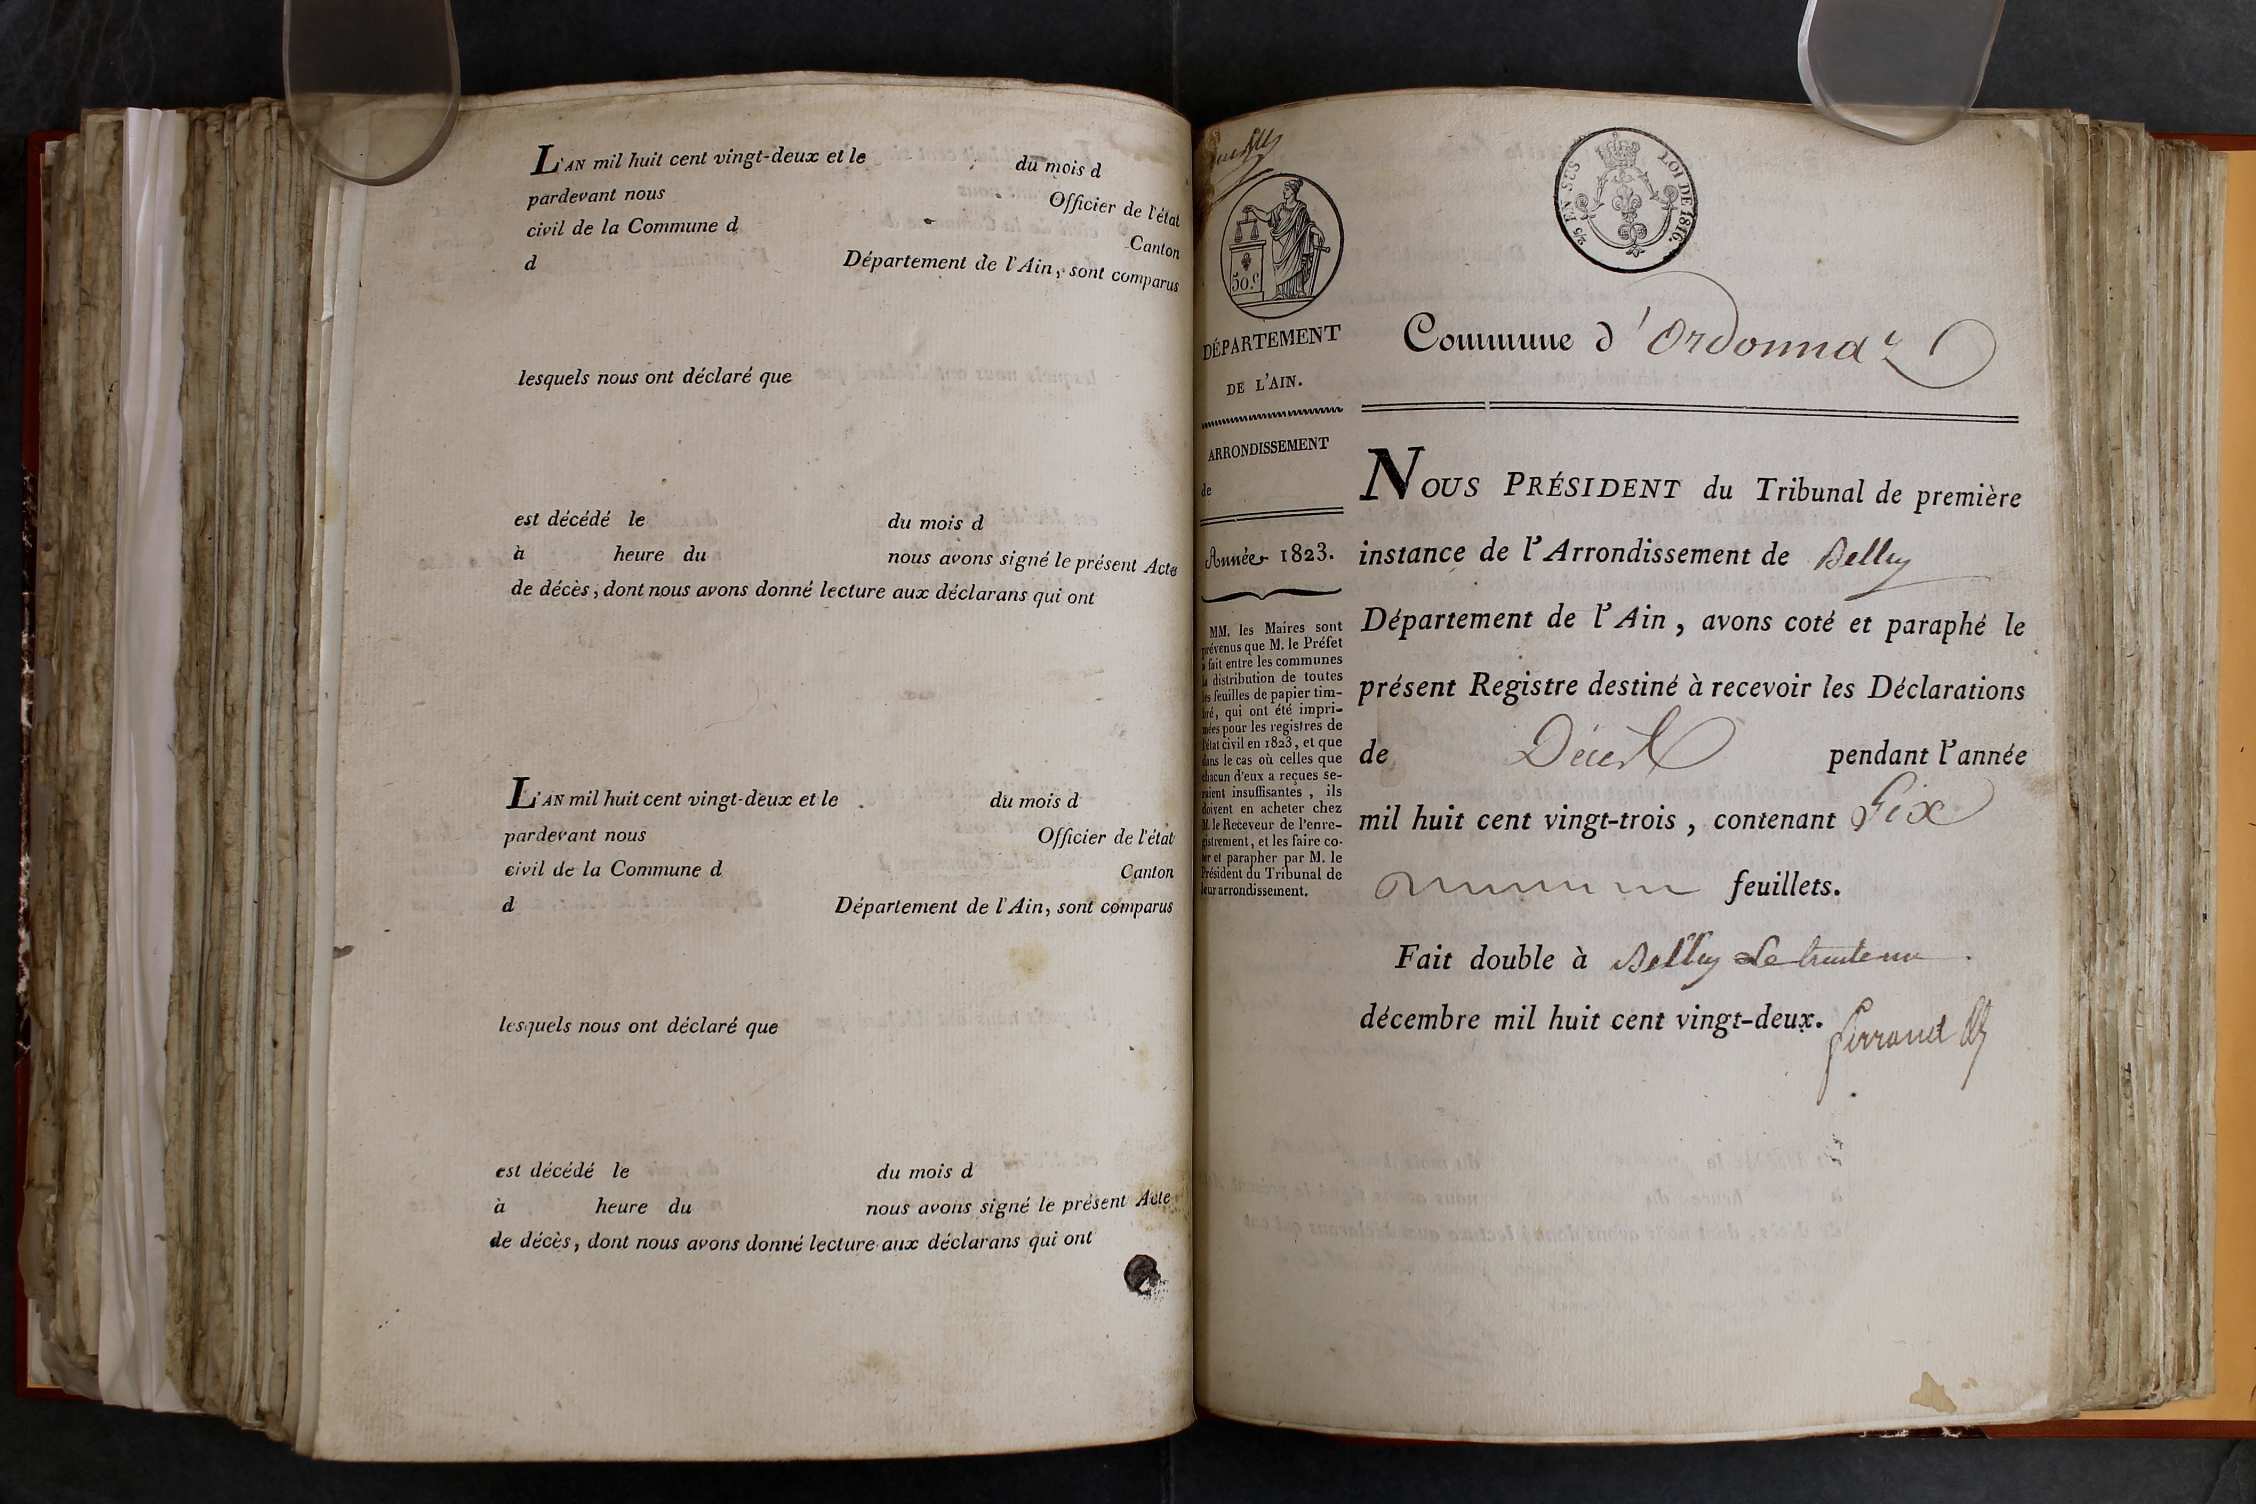 L'AN mil huit cent vingt-deux et le du mois d
pardevant nous Officier de l'état
civil de la Commune d Canton
d Département de l'Ain, sont comparus
lesquels nous ont déclaré que
est décédé le du mois d
à heure du nous avons signé le présent Acte
de décès, dont nous avons donné lecture aux déclarans qui ont
L'AN mil huit cent vingt-deux et le du mois d
pardevant nous Officier de l'état
civil de la Commune d Canton
d Département de l'Ain, sont comparus
lesquels nous ont déclaré que
est décédé le du mois d
à heure du nous avons signé le présent Acte
de décès, dont nous avons donné lecture aux déclarans qui ont
50 c
DÉPARTEMENT
DE L'AIN.
ARRONDISSEMENT
de
Année 1823.
MM. les Maires sont
prévenus que M. le Préfet
a fait entre les communes
la distribution de toutes
les feuilles de papier tim-
bré, qui ont été impri-
mées pour les registres de
l'état civil en 1823, et que
dans le cas où celles que
chacun d'eux a reçues se-
raient insuffisantes, ils
doivent en acheter chez
M. le Receveur de l'enre-
gistrement, et les faire co-
ter et parapher par M. le
Président du Tribunal de
leur arrondissement.
EN SUS LOI DE 1816.
Commune d'Ordonnaz
NOUS PRÉSIDENT du Tribunal de première
instance de l'Arrondissement de Belley
Département de l'Ain, avons coté et paraphé le
présent Registre destiné à recevoir les Déclarations
de Décès pendant l'année
mil huit cent vingt-trois, contenant Six
feuillets.
Fait double à Belley Le trente un
décembre mil huit cent vingt-deux.